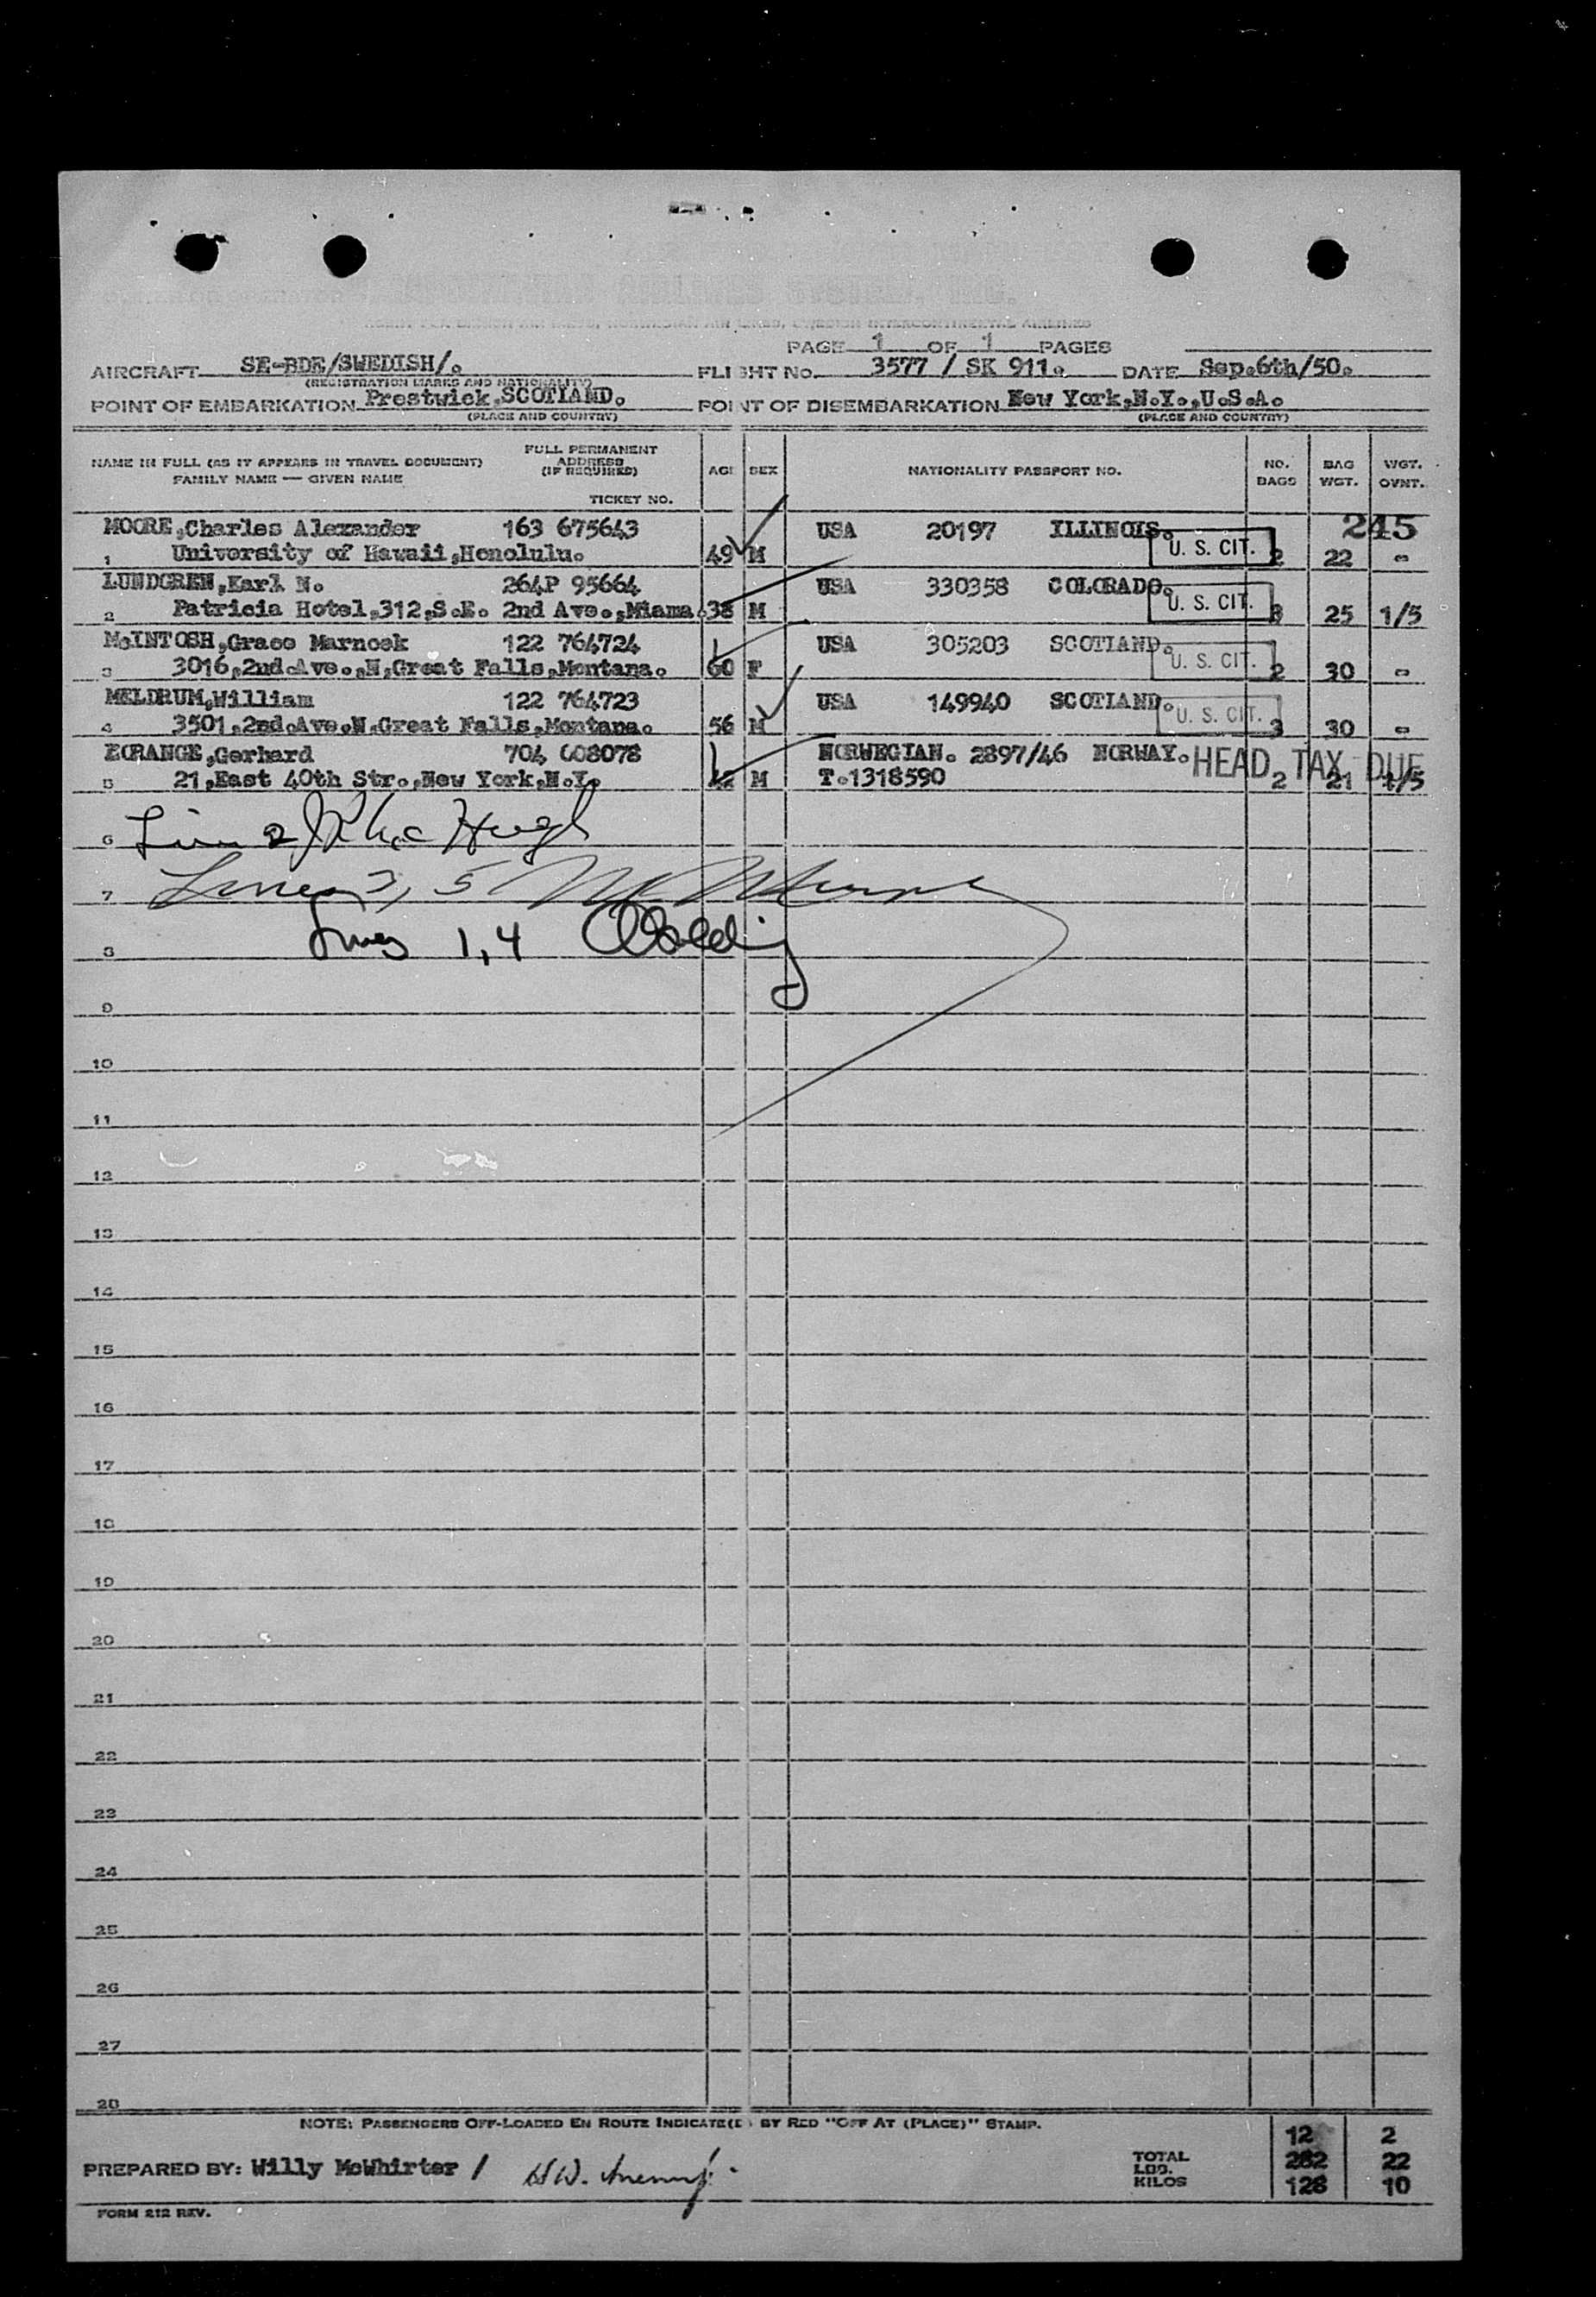 PAGE 1 OF 1 PAGES
AIRCRAFT SE-BDE/SWEDISH/. FLIGHT NO. 3577 / SK 911. DATE Sep.6th/50.
(REGISTRATION MARKS AND NATIONALITY)
POINT OF EMBARKATION Prestwick,SCOTLAND. POINT OF DISEMBARKATION New York,N.Y.,U.S.A.
(PLACE AND COUNTRY) (PLACE AND COUNTRY)
NAME IN FULL (AS IT APPEARS IN TRAVEL DOCUMENT) FULL PERMANENT ADDRESS (IF REQUIRED) AGE SEX NATIONALITY PASSPORT NO. NO. BAGS BAG WGT. WGT. OVNT.
FAMILY NAME — GIVEN NAME
TICKET NO.
MOORE,Charles Alexander 163 675643 USA 20197 ILLINOIS. 245
1 University of Hawaii,Honolulu. 49 M U. S. CIT. 2 22 -
LUNDGREN,Karl N. 264P 95664 USA 330358 COLORADO.
2 Patricia Hotel,312,S.E. 2nd Ave.,Miama. 38 M U. S. CIT. 3 25 1/5
McINTOSH,Grace Marnoek 122 764724 USA 305203 SCOTLAND.
3 3016,2nd.Ave.,N,Great Falls,Montana. 60 F U. S. CIT. 2 30 -
MELDRUM,William 122 764723 USA 149940 SCOTLAND.
4 3501,2nd.Ave.N.Great Falls,Montana. 56 M U. S. CIT. 3 30 -
Gerhard 704 608078 NORWEGIAN. 2897/46 NORWAY. HEAD TAX DUE
5 21,East 40th Str.,New York,N.Y. 42 M T.1318590 2 21 1/5
6 Line 2
7 Lines 3, 5
8 Lines 1,4
9
10
11
12
13
14
15
16
17
18
19
20
21
22
23
24
25
26
27
28
NOTE: PASSENGERS OFF-LOADED EN ROUTE INDICATE(D) BY RED "OFF AT (PLACE)" STAMP.
12 2
PREPARED BY: Willy McWhirter / TOTAL LBD. KILOS 282 22
128 10
FORM 212 REV.